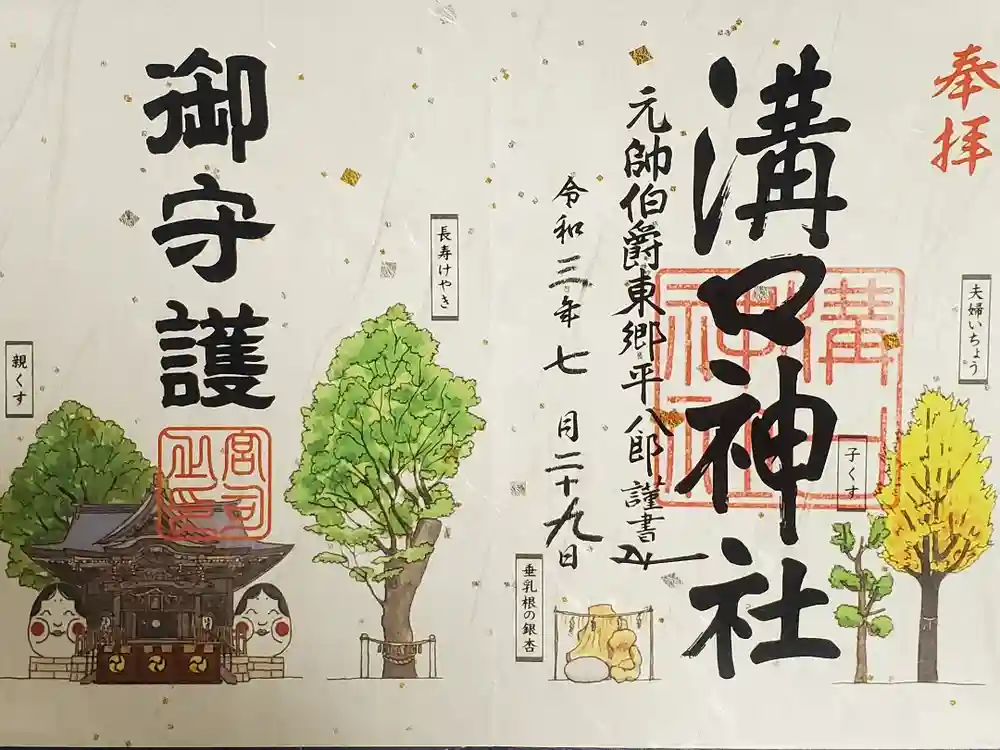 奉拝
夫婦いちょう
子くす
溝口神社
溝口神社
元帥伯爵東郷平八郎謹書
令和三年七月二十九日
垂乳根の銀杏
長寿けやき
御守護
宮司之印
親くす